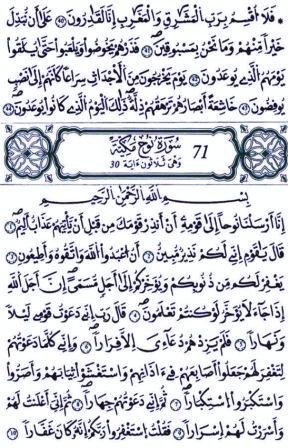 * فَلَا أُقْسِمُ بِرَبِّ الْمَشَٰرِقِ وَالْمَغَٰرِبِ إِنَّا لَقَٰدِرُونَ 40 عَلَىٰ أَن نُّبَدِّلَ
خَيْرًا مِّنْهُمْ وَمَا نَحْنُ بِمَسْبُوقِينَ 41 فَذَرْهُمْ يَخُوضُوا وَيَلْعَبُوا حَتَّىٰ يُلَٰقُوا
يَوْمَهُمُ الَّذِي يُوعَدُونَ 42 يَوْمَ يَخْرُجُونَ مِنَ الْأَجْدَاثِ سِرَاعًا كَأَنَّهُمْ إِلَىٰ نَصْبٍ
يُوفِضُونَ 43 خَٰشِعَةً أَبْصَٰرُهُمْ تَرْهَقُهُمْ ذِلَّةٌ ذَٰلِكَ الْيَوْمُ الَّذِي كَانُوا يُوعَدُونَ 44
71 سُورَةُ نُوحٍ مَكِّيَّةٌ
وَهْىَ ثَلَاثُونَ ءَايَةً 30
بِسْمِ اللَّهِ الرَّحْمَٰنِ الرَّحِيمِ
إِنَّا أَرْسَلْنَا نُوحًا إِلَىٰ قَوْمِهِ أَنْ أَنذِرْ قَوْمَكَ مِن قَبْلِ أَن يَأْتِيَهُمْ عَذَابٌ أَلِيمٌ 1
قَالَ يَٰقَوْمِ إِنِّي لَكُمْ نَذِيرٌ مُّبِينٌ 2 أَنُ اعْبُدُوا اللَّهَ وَاتَّقُوهُ وَأَطِيعُونِ 3
يَغْفِرْ لَكُم مِّن ذُنُوبِكُمْ وَيُوَخِّرْكُمْ إِلَىٰ أَجَلٍ مُّسَمًّى إِنَّ أَجَلَ اللَّهِ
إِذَا جَاءَ لَا يُوَخَّرُ لَوْ كُنتُمْ تَعْلَمُونَ 4 قَالَ رَبِّ إِنِّي دَعَوْتُ قَوْمِي لَيْلًا
وَنَهَارًا 5 فَلَمْ يَزِدْهُمْ دُعَاءِيَ إِلَّا فِرَارًا 6 وَإِنِّي كُلَّمَا دَعَوْتُهُمْ
لِتَغْفِرَ لَهُمْ جَعَلُوا أَصَٰبِعَهُمْ فِي ءَاذَانِهِمْ وَاسْتَغْشَوْا ثِيَابَهُمْ وَأَصَرُّوا
وَاسْتَكْبَرُوا اسْتِكْبَارًا 7 ثُمَّ إِنِّي دَعَوْتُهُمْ جِهَارًا 8 ثُمَّ إِنِّيَ أَعْلَنتُ لَهُمْ
وَأَسْرَرْتُ لَهُمْ إِسْرَارًا 9 فَقُلْتُ اسْتَغْفِرُوا رَبَّكُمْ إِنَّهُ كَانَ غَفَّارًا 10